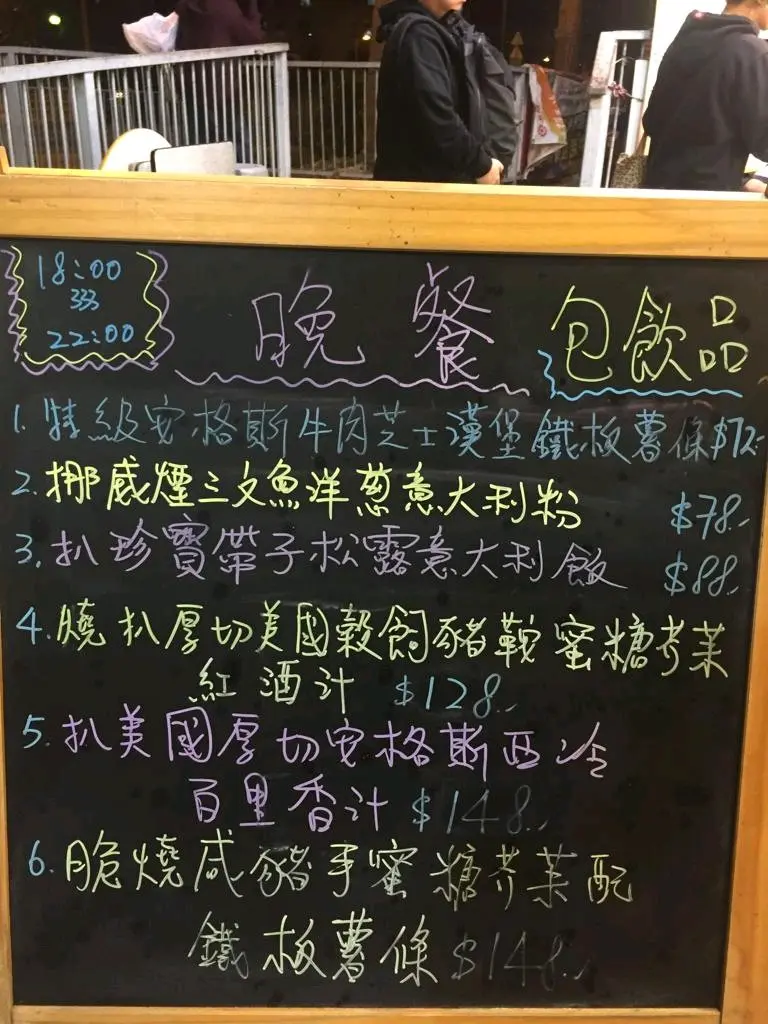 18:00
22:00
晚餐 包飲品
1. 特級安格斯牛肉芝士漢堡鐵板薯條$72.-
2. 挪威煙三文魚洋葱意大利粉 $78.-
3. 扒珍寶帶子松露意大利飯 $88.-
4. 燒扒厚切美國穀飼豬鞍蜜糖芥茉
紅酒汁 $128.-
5. 扒美國厚切安格斯西冷
百里香汁 $148.-
6. 脆燒咸豬手蜜糖芥茉配
鐵板薯條 $148.-